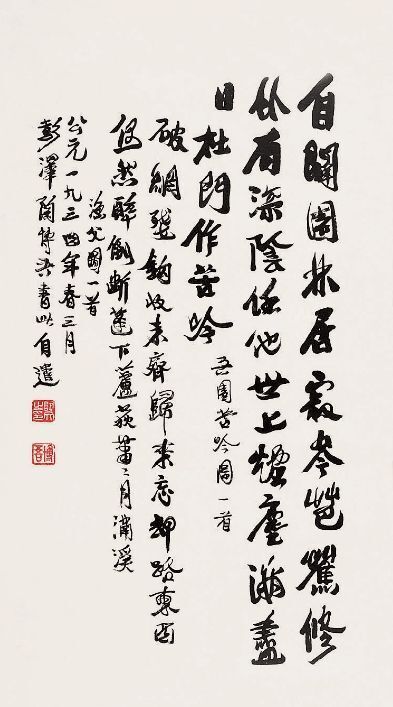 自闢園林居寂岑修
竹有深陰任他世上煙塵滿盡
日杜門作苦吟
吾園苦吟圖一首
破網殘鉤收未齊歸來忘卻路東西
然醉倒斷蓬下蘆荻蕭〻月滿溪
漁父圖一首
公元一九三四年春三月
彭澤陶博吾書以自遣